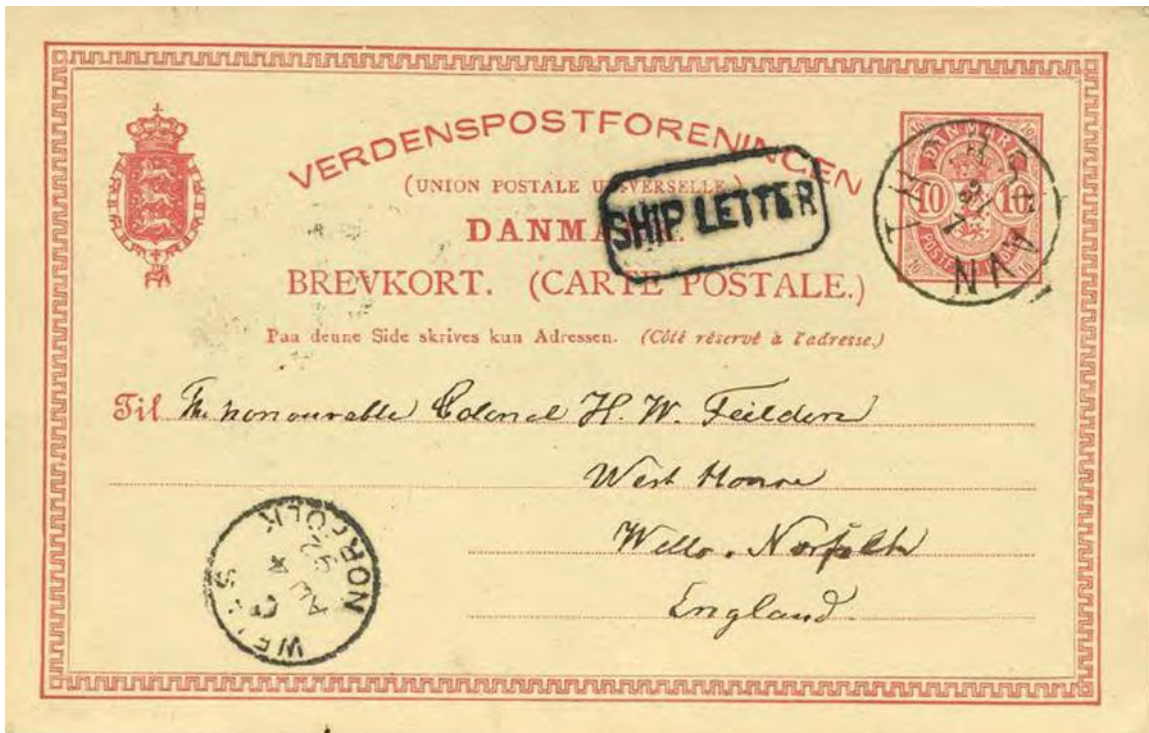 VERDENSPOSTFORENINGEN
(UNION POSTALE UNIVERSELLE.)
SHIP LETTER
DANMARK
10 10
DANMARK.
BREVKORT. (CARTE POSTALE.)
Paa denne Side skrives kun Adressen. (Côté réservé à l'adresse.)
Til The honourable Colonel H. W. Feilden
West House
Wells. Norfolk
England
WELLS NORFOLK